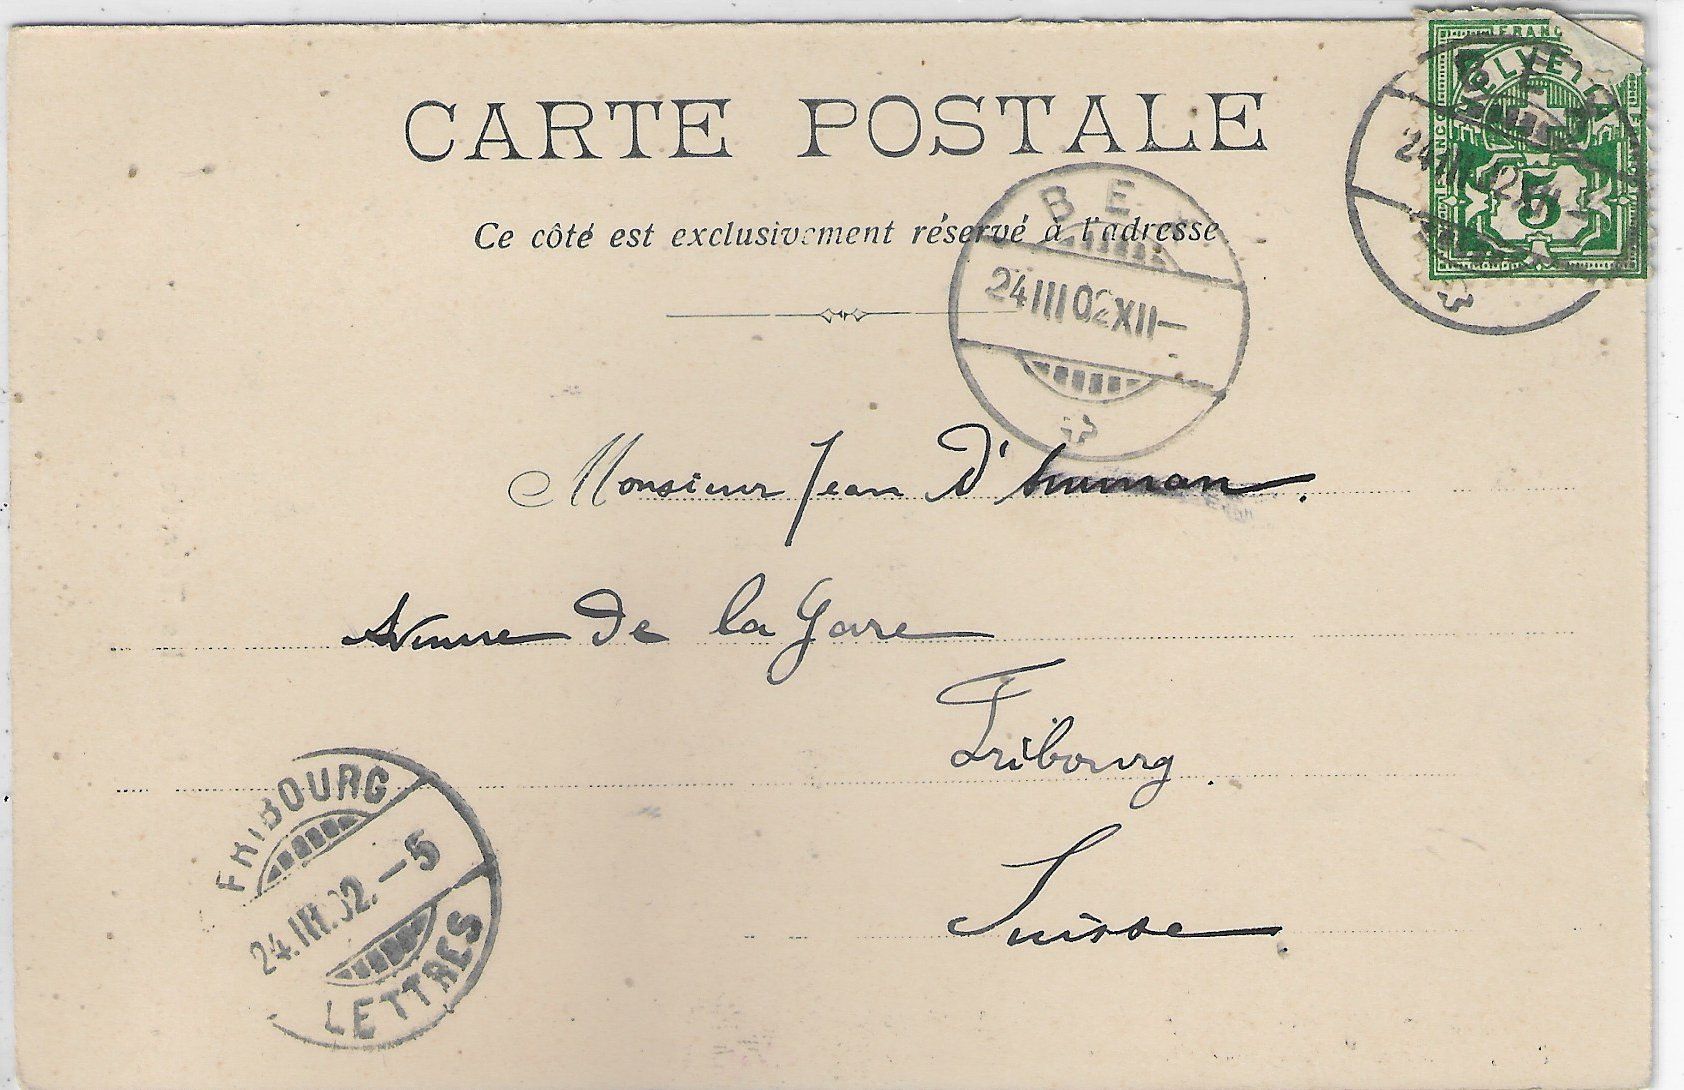 CARTE POSTALE
Ce côté est exclusivement réservé à l'adresse
FRANCO
5
BEX
24 III 02 XII –
24 III 02 XII –
Monsieur Jean D'Amman.
Avenue de la Gare
Fribourg.
Suisse.
FRIBOURG
24.III.02. – 5
LETTRES